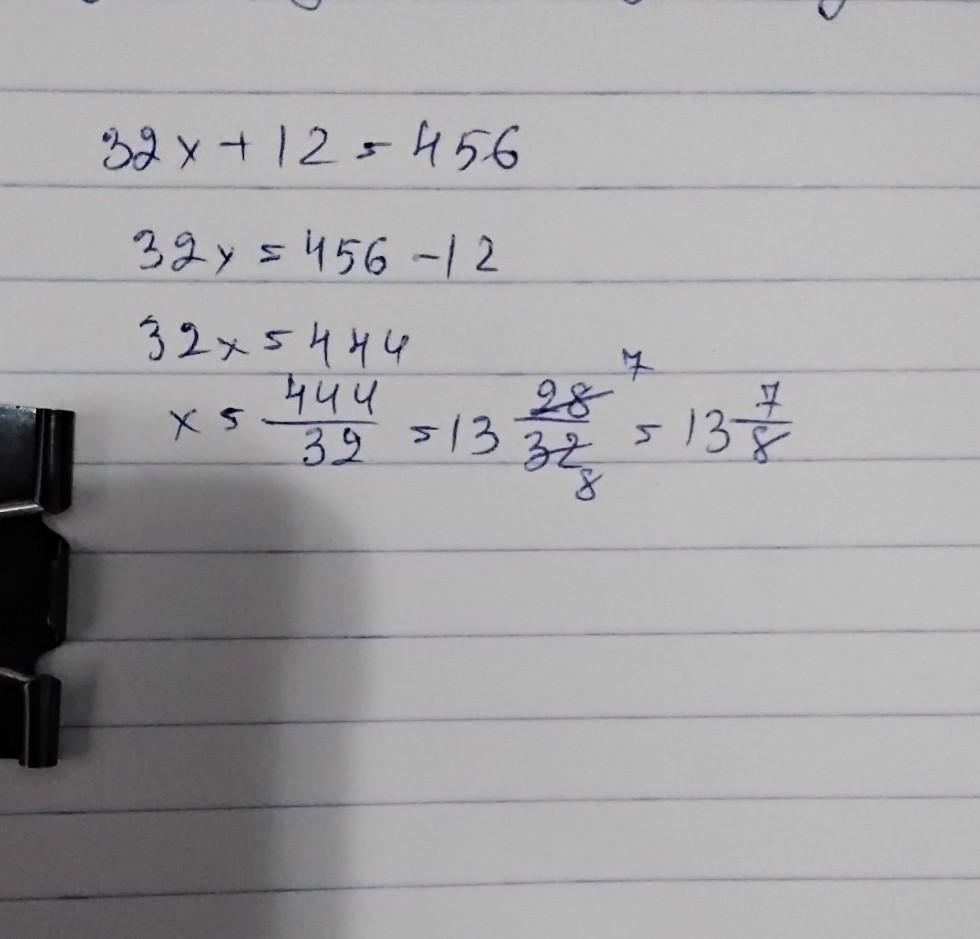 32x + 12 = 456
32x = 456 - 12
32x = 444
x = 444/32 = 13 28/32 7 8 = 13 7/8